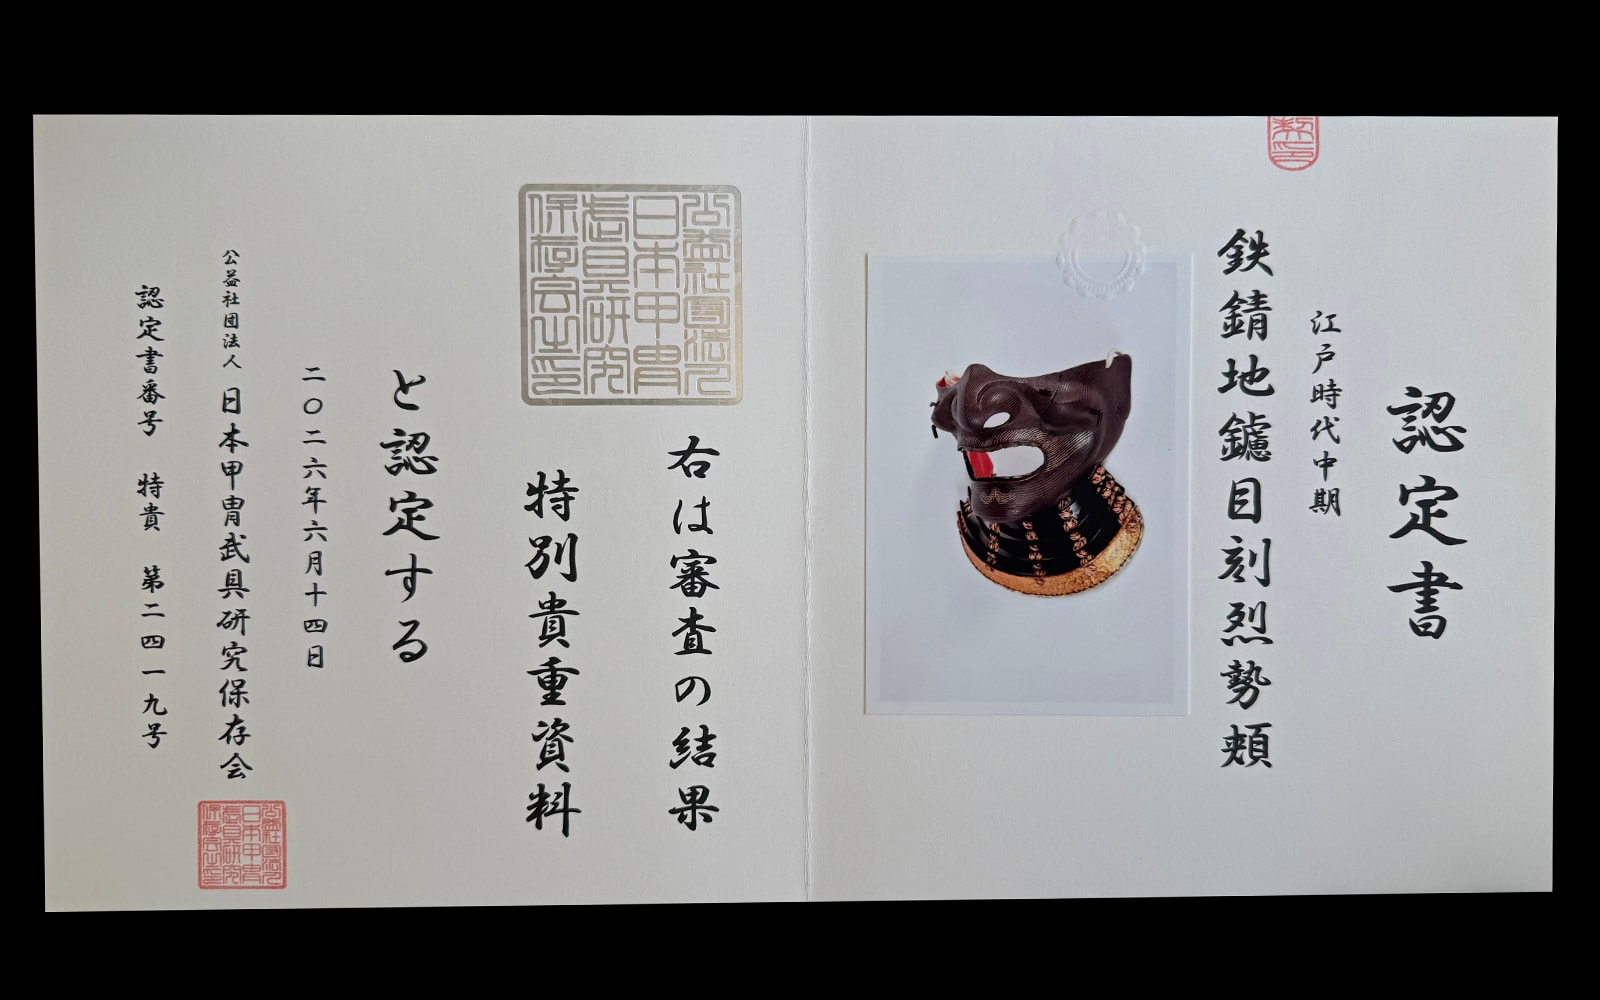 認定書
江戸時代中期
鉄錆地鑢目刻烈勢頬
右は審査の結果
特別貴重資料
と認定する
二〇二六年六月十四日
公益社団法人 日本甲冑武具研究保存会
認定書番号 特貴 第二四一九号
公益社団法人
日本甲冑
武具研究
保存会之印